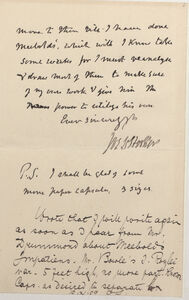 more to them till I have done
Meebolds, which will I know take
some weeks for I must reanalyse
& draw most of them to make sure
of my own work & give him the
power to utilize his own
Ever sincerely yrs
Jos. D. Hooker
P.S. I shall be glad of some
more paper capsules, 3 sizes
Wrote that I will write again
as soon as I hear from Mr.
Drummond about Meebold's
Impatiens. Mr. Burke's I.
var. 5 feet high, no more part. known
Caps. as desired to separate